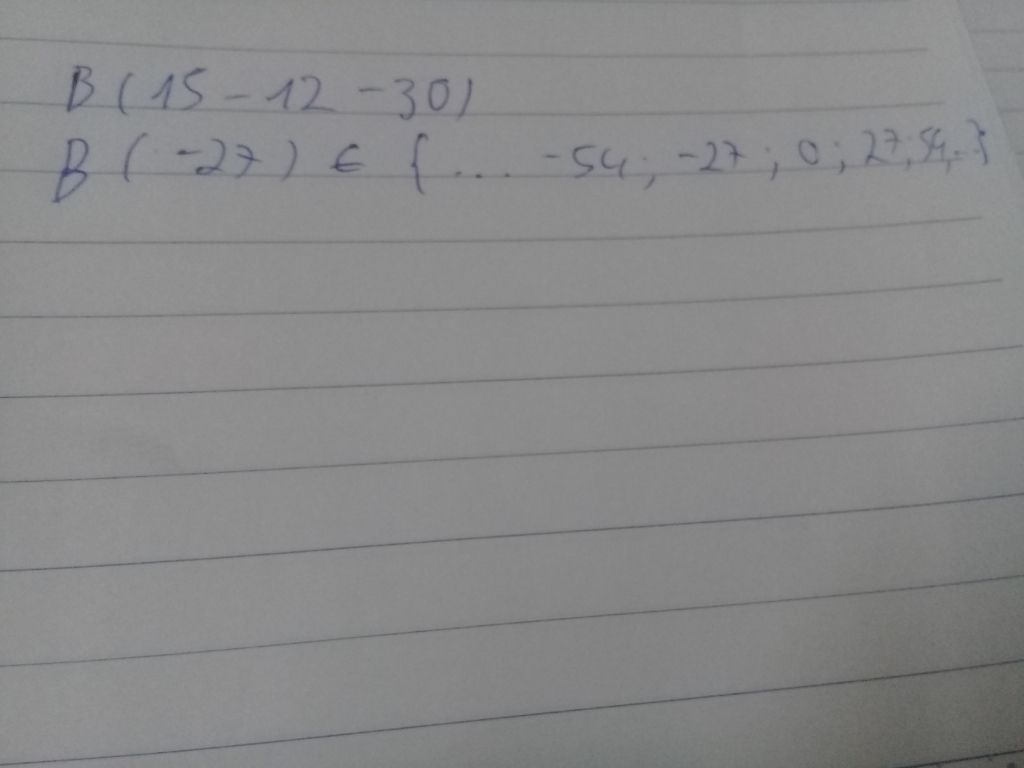 B (15 - 12 - 30)
B (-27) € {... -54; -27; 0; 27; 54, .}